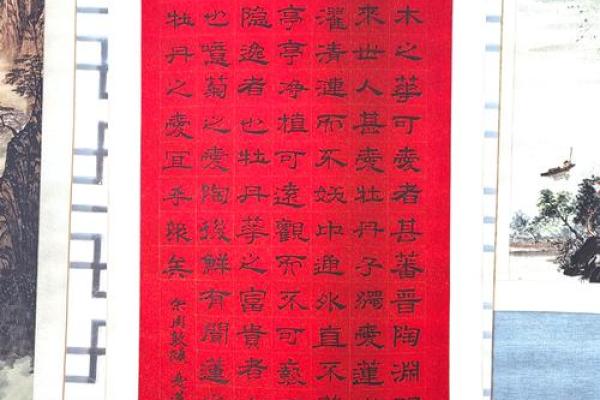 木之華可愛者甚蕃晉陶淵
來世人甚愛牡丹予獨愛蓮
濯清漣而不妖中通外直不
亭亭淨植可遠觀而不可褻
隱逸者也牡丹華之富貴者
也噫菊之愛陶後鮮有聞蓮
牡丹之愛宜乎眾矣
宋周敦頤愛蓮